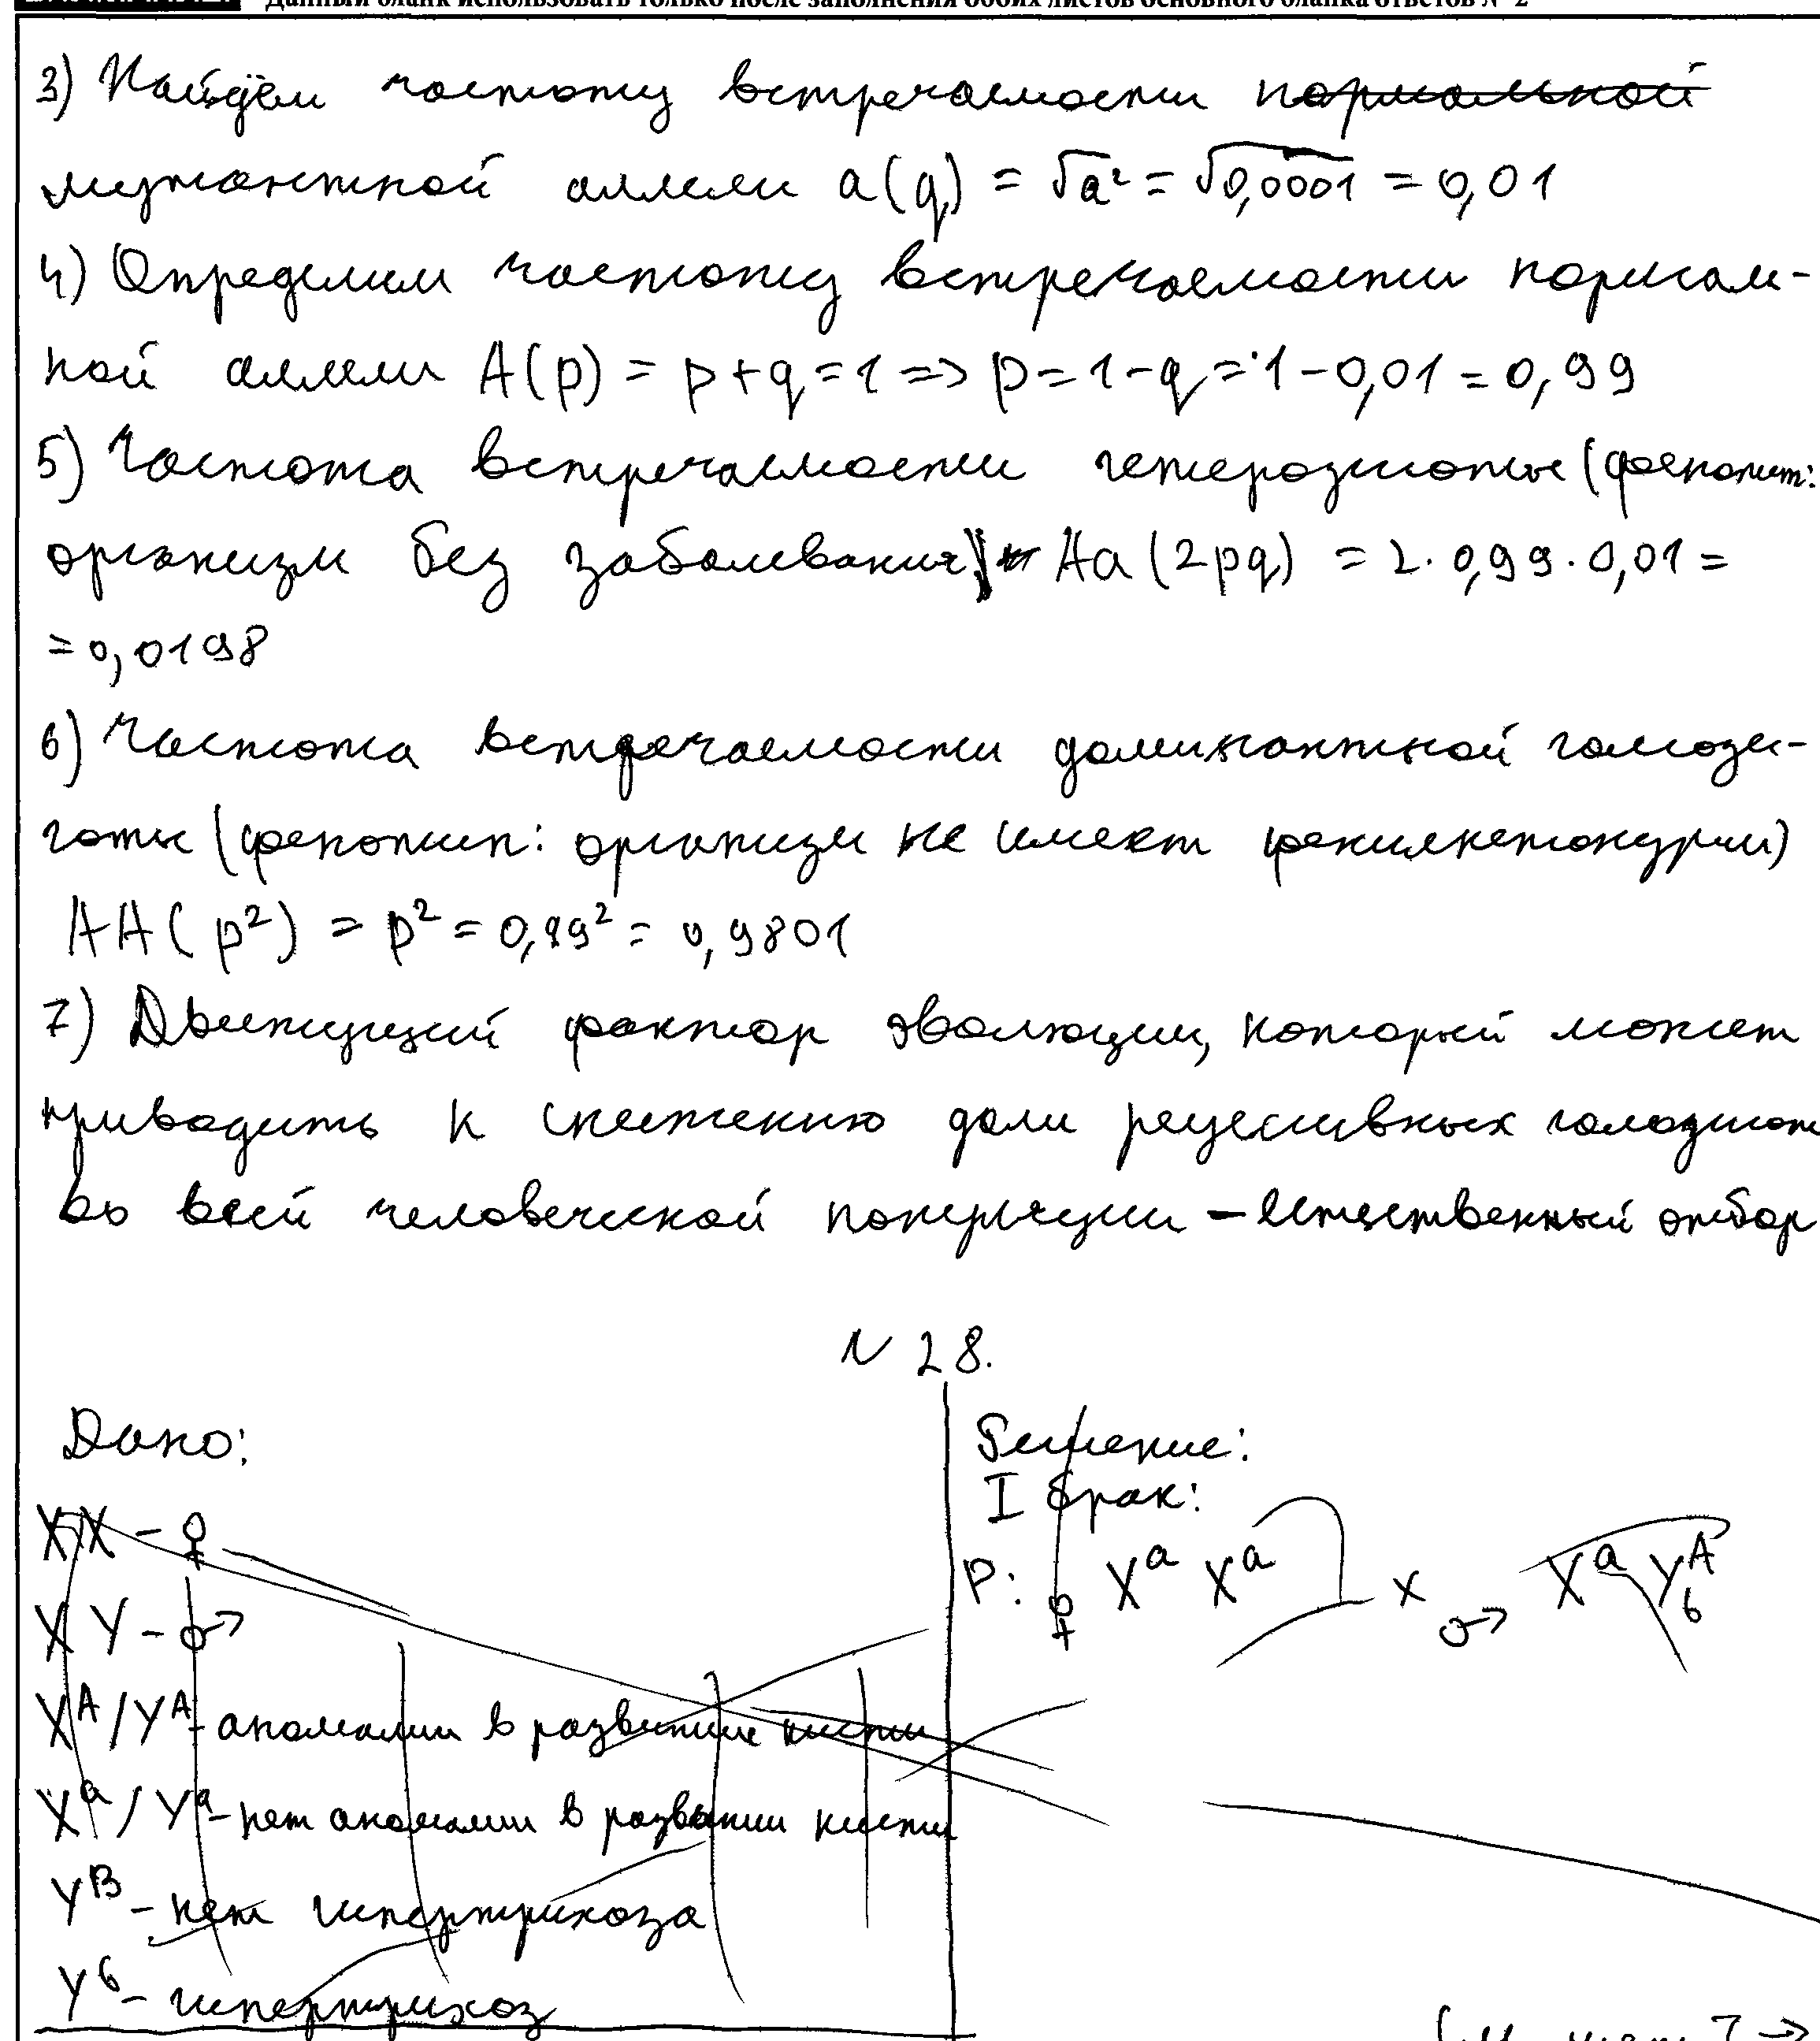 Данный бланк использовать только после заполнения обоих листов основного бланка ответов № 2
3) Найдём частоту встречаемости нормальной
мутантной аллели a(q) = √a² = √0,0001 = 0,01
4) Определим частоту встречаемости нормаль-
ной аллели A(p) = p+q=1 => p=1-q=1-0,01=0,99
5) Частота встречаемости гетерозиготы (фенотип:
организм без заболевания) Aa (2pq) = 2·0,99·0,01=
=0,0198
6) Частота встречаемости доминантной гомози-
готы (фенотип: организм не имеет фенилкетонурии)
AA(p²) = p² = 0,99² = 0,9801
7) Движущий фактор эволюции, который может
приводить к снижению доли рецессивных гомозигот
во всей человеческой популяции - естественный отбор
N 28.
Дано:
XX - ♀
XY - ♂
X^A/Y^A - аномалии в развитие кисти
X^a/Y^a - нет аномалии в развитии кисти
Y^B - нет гипертрихоза
Y^b - гипертрихоз
Решение:
I брак:
P: ♀ X^a X^a x ♂ X^a Y^A_b